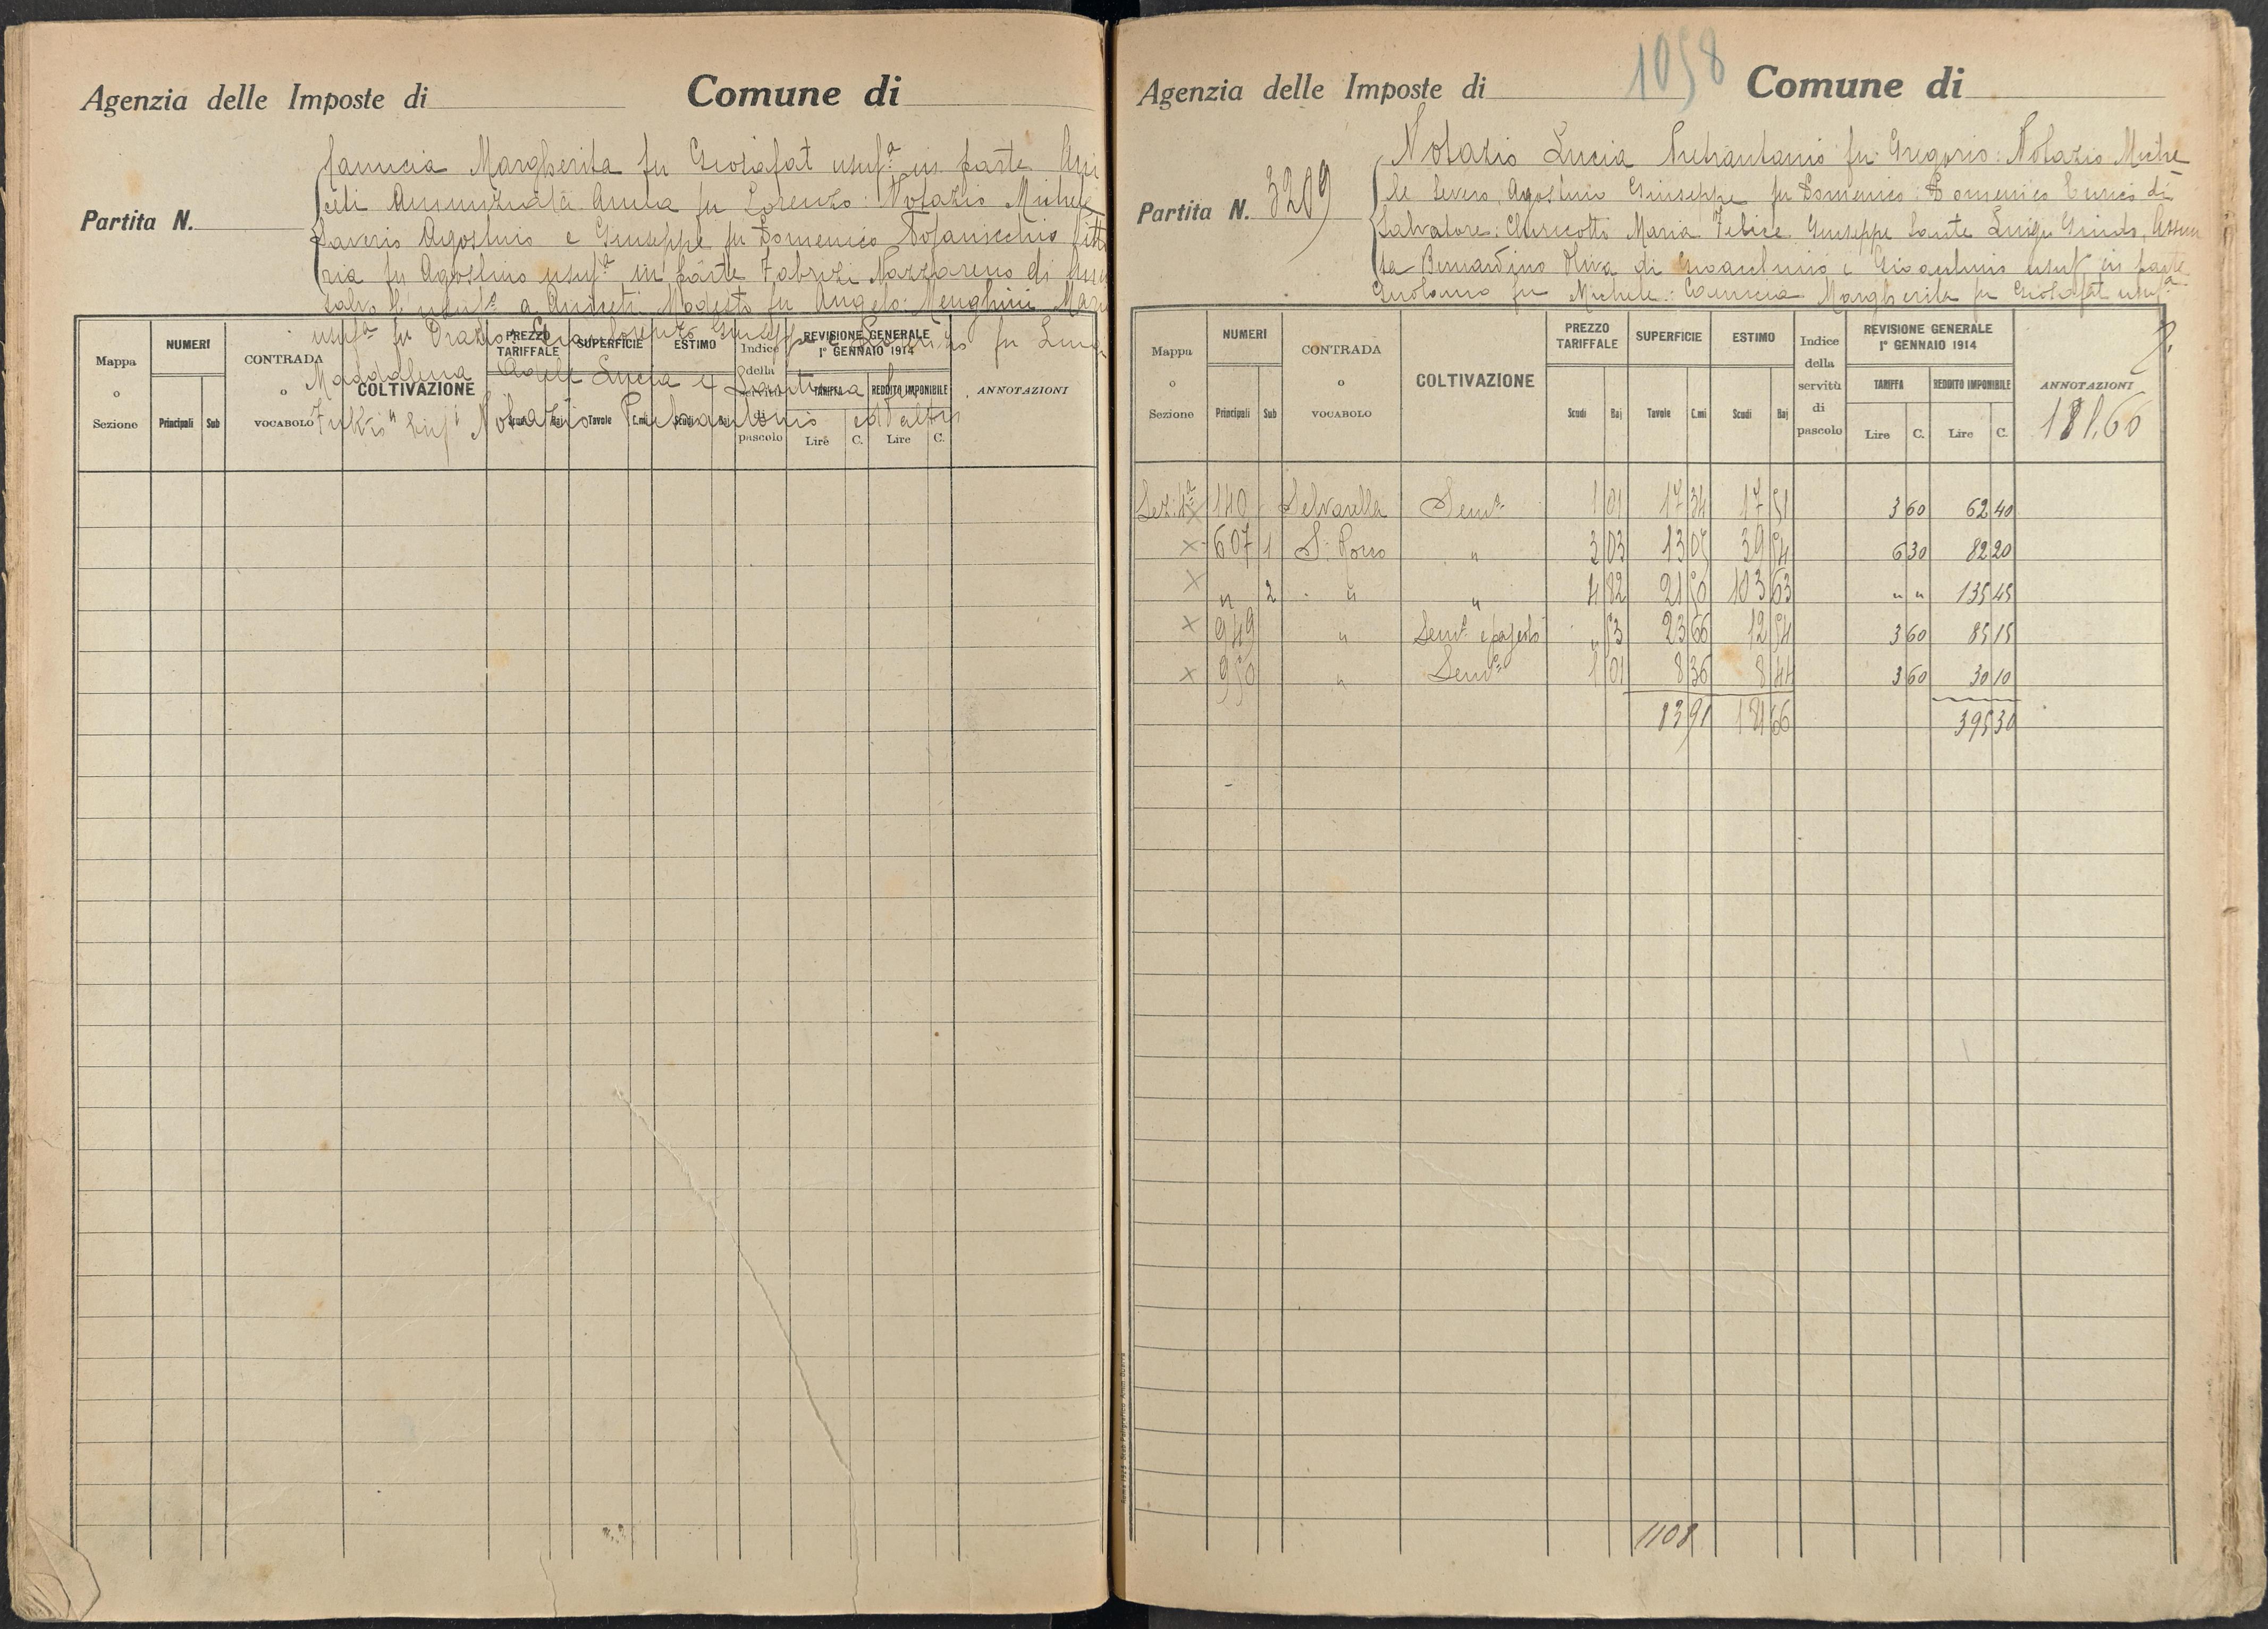 Agenzia delle Imposte di
Comune di
Margherita fu Giosafat usuf.ª in parte
Annunziata fu Lorenzo: Notazio Michele
Partita N.
Saverio Agostino e Giuseppe fu Domenico
ria fu Agostino usuf.ª in parte Fabrizi Nazzareno di
salvo a Andreti Modesto fu Angelo: Menghini
usuf.ª fu Orazio Gianlorenzo Giuseppe fu
Maddalena Adele Lucia e
Notazio Pietrantonio ed altri
Mappa o Sezione
NUMERI
Principali Sub
CONTRADA o VOCABOLO
COLTIVAZIONE
PREZZO TARIFFALE
Scudi Baj
SUPERFICIE
Tavole C.mi
ESTIMO
Scudi Baj
Indice della servitù di pascolo
REVISIONE GENERALE 1° GENNAIO 1914
TARIFFA REDDITO IMPONIBILE
Lire C. Lire C.
ANNOTAZIONI
1058
Agenzia delle Imposte di
Comune di
Notazio Lucia Pietrantonio fu Gregorio: Notazio Miche
Partita N. 3209
le Severo, Agostino Giuseppe fu Domenico: Domenico Enrico di
Salvatore: Chiricotto Maria Felice Giuseppe Sante Luigi Guido, Assun
ta Bernardino Oliva di Gioacchino e Gioacchino usuf. in parte
Girolamo fu Michele: Margherita fu Giosafat usuf.ª
Mappa o Sezione
NUMERI
Principali Sub
CONTRADA o VOCABOLO
COLTIVAZIONE
PREZZO TARIFFALE
Scudi Baj
SUPERFICIE
Tavole C.mi
ESTIMO
Scudi Baj
Indice della servitù di pascolo
REVISIONE GENERALE 1° GENNAIO 1914
TARIFFA REDDITO IMPONIBILE
Lire C. Lire C.
ANNOTAZIONI
181,66
Sez. 1ª x 140 Selvarella Sem.º 1 01 17 34 17 51 3 60 62 40
x 607 1 S. Rocco " 3 03 13 05 39 54 6 30 82 20
x " 2 " " 4 82 21 50 103 63 " " 135 45
x 949 " Sem.º e pascolo " 53 23 66 12 54 3 60 85 15
x 950 " Sem.º 1 01 8 36 8 44 3 60 30 10
83 91 181 66 395 30
1108